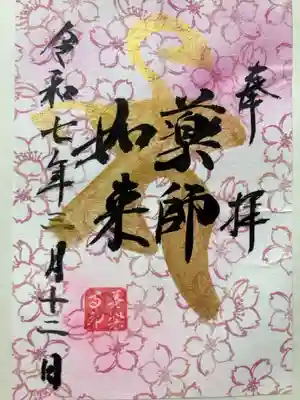 奉拝
薬師
如来
令和七年三月十二日